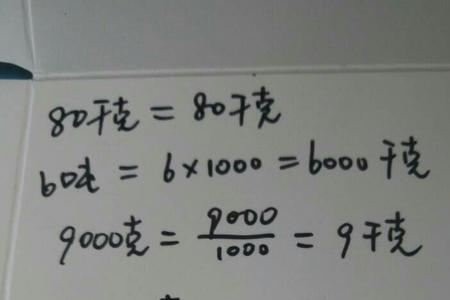 80千克 = 80千克
60吨 = 6×1000 = 6000千克
9000克 = 9000/1000 = 9千克